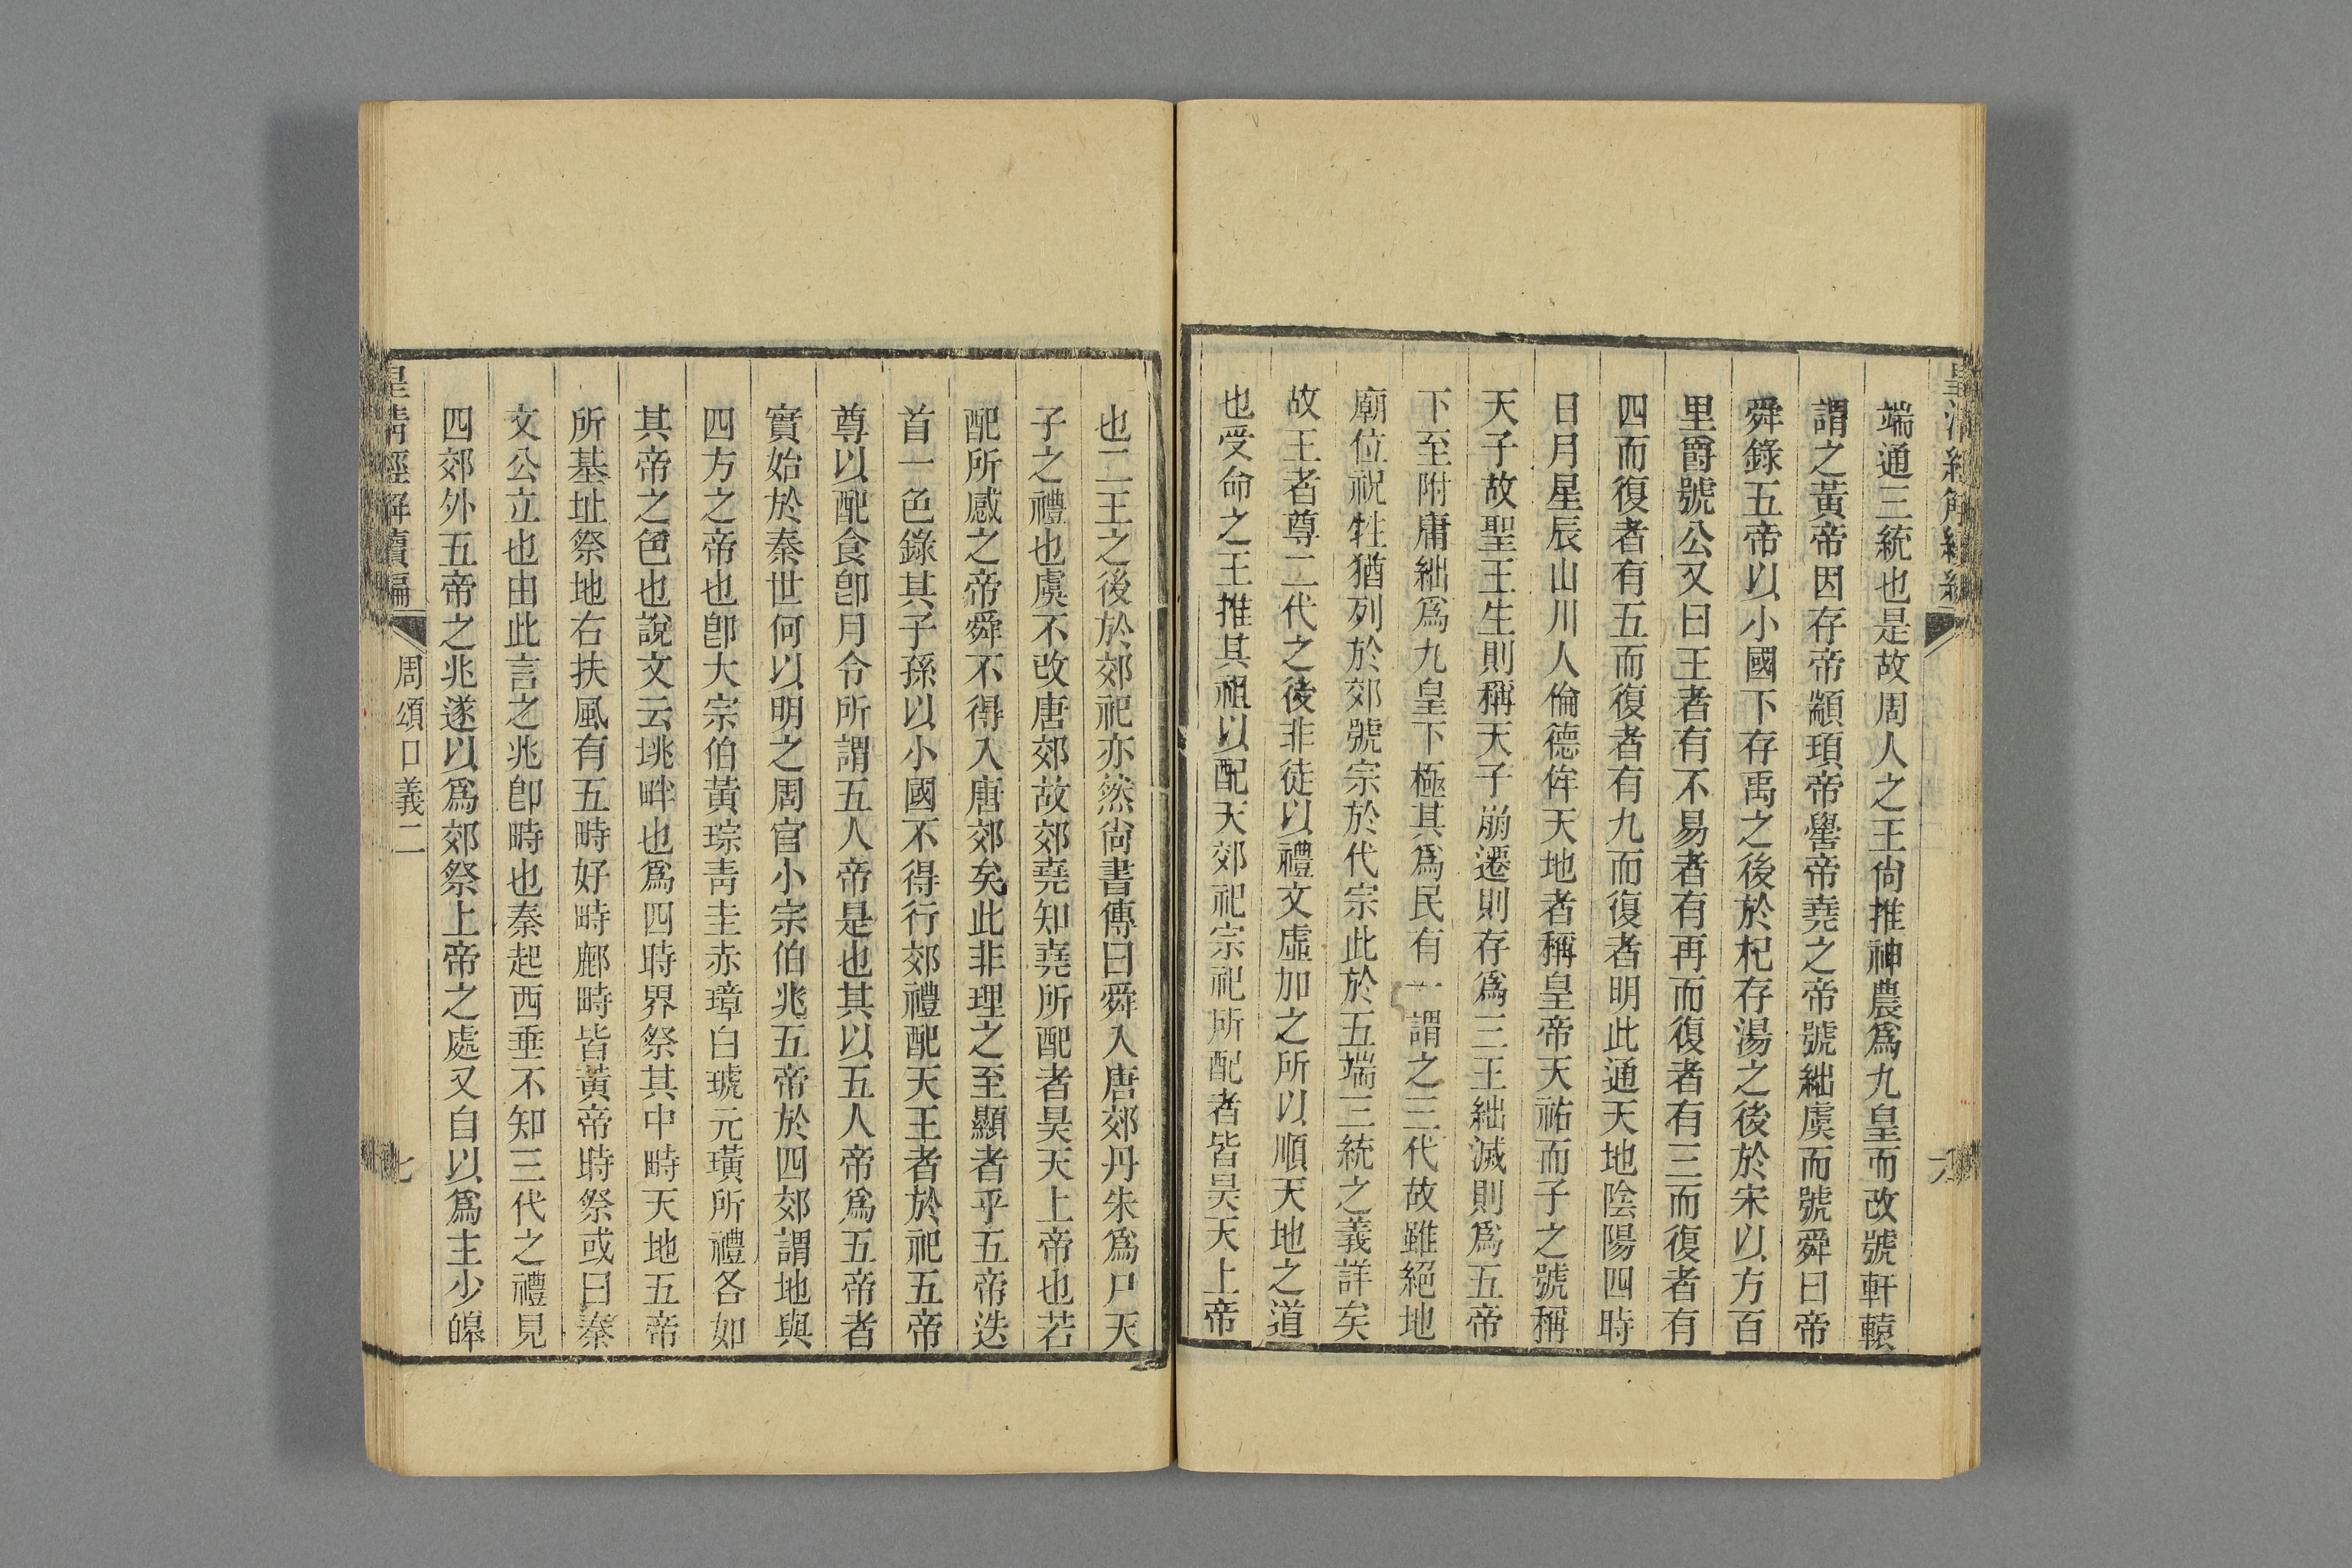 端通三統也是故周人之王尙推神農爲九皇而改號軒轅
謂之黃帝因存帝顓頊帝嚳帝堯之帝號絀虞而號舜曰帝
舜錄五帝以小國下存禹之後於杞存湯之後於宋以方百
里爵號公又曰王者有不易者有再而復者有三而復者有
四而復者有五而復者有九而復者明此通天地陰陽四時
日月星辰山川人倫德侔天地者稱皇帝天祐而子之號稱
天子故聖王生則稱天子崩遷則存爲三王絀滅則爲五帝
下至附庸絀爲九皇下極其爲民有一謂之三代故雖絕地
廟位祝牲猶列於郊號宗於代宗此於五端三統之義詳矣
故王者尊二代之後非徒以禮文虛加之所以順天地之道
也受命之王推其祖以配天郊祀宗祀所配者皆昊天上帝
也二王之後於郊祀亦然尙書傳曰舜入唐郊丹朱爲尸天
子之禮也虞不改唐郊故郊堯知堯所配者昊天上帝也若
配所感之帝舜不得入唐郊矣此非理之至顯者乎五帝迭
首一色錄其子孫以小國不得行郊禮配天王者於祀五帝
尊以配食卽月令所謂五人帝是也其以五人帝爲五帝者
實始於秦世何以明之周官小宗伯兆五帝於四郊謂地與
四方之帝也卽大宗伯黃琮靑圭赤璋白琥元璜所禮各如
其帝之色也說文云垗畔也爲四時界祭其中畤天地五帝
所基址祭地右扶風有五畤好畤鄜畤皆黃帝時祭或曰秦
文公立也由此言之兆卽畤也秦起西垂不知三代之禮見
四郊外五帝之兆遂以爲郊祭上帝之處又自以爲主少皞
皇淸經解續編
周頌口義二
七